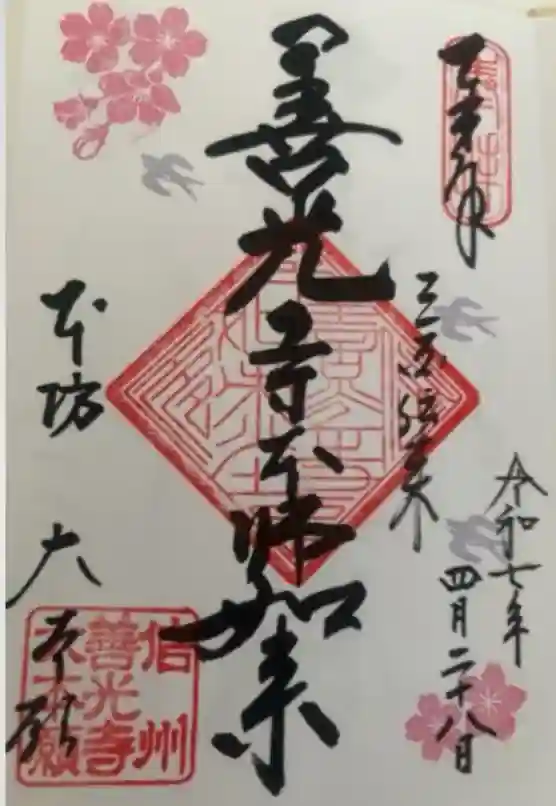 奉拝
令和七年
四月二十八日
三国伝来
善光寺本師如来
本坊
大本願
信州
善光寺
大本願